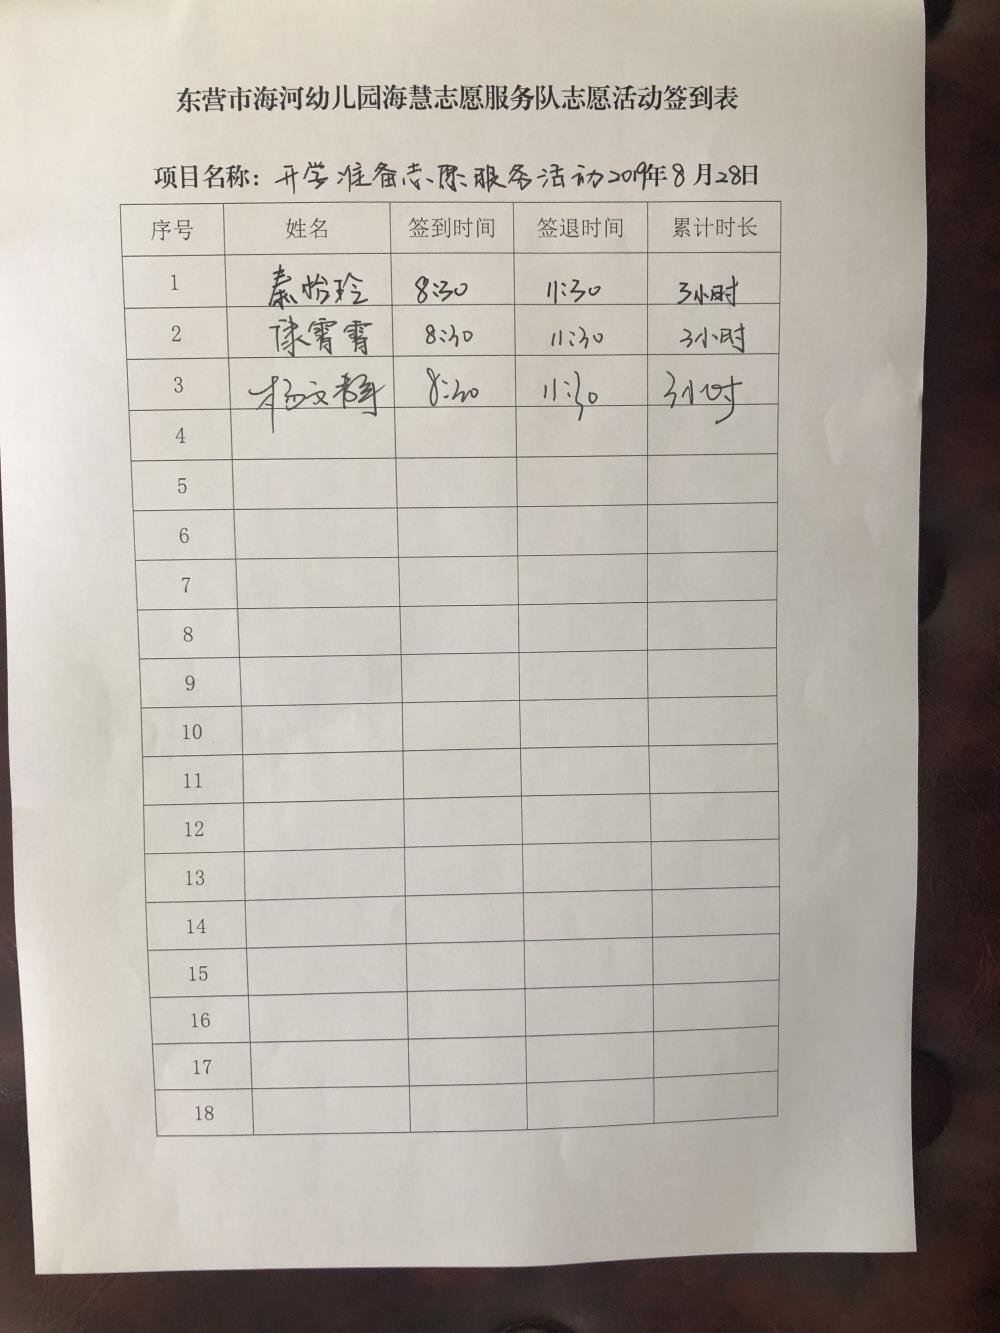 东营市海河幼儿园海慧志愿服务队志愿活动签到表
项目名称：开学准备志愿服务活动2019年8月28日
序号 姓名 签到时间 签退时间 累计时长
1 秦怡玲 8:30 11:30 3小时
2 霄霄 8:30 11:30 3小时
3 杨文 8:30 11:30 3小时
4
5
6
7
8
9
10
11
12
13
14
15
16
17
18